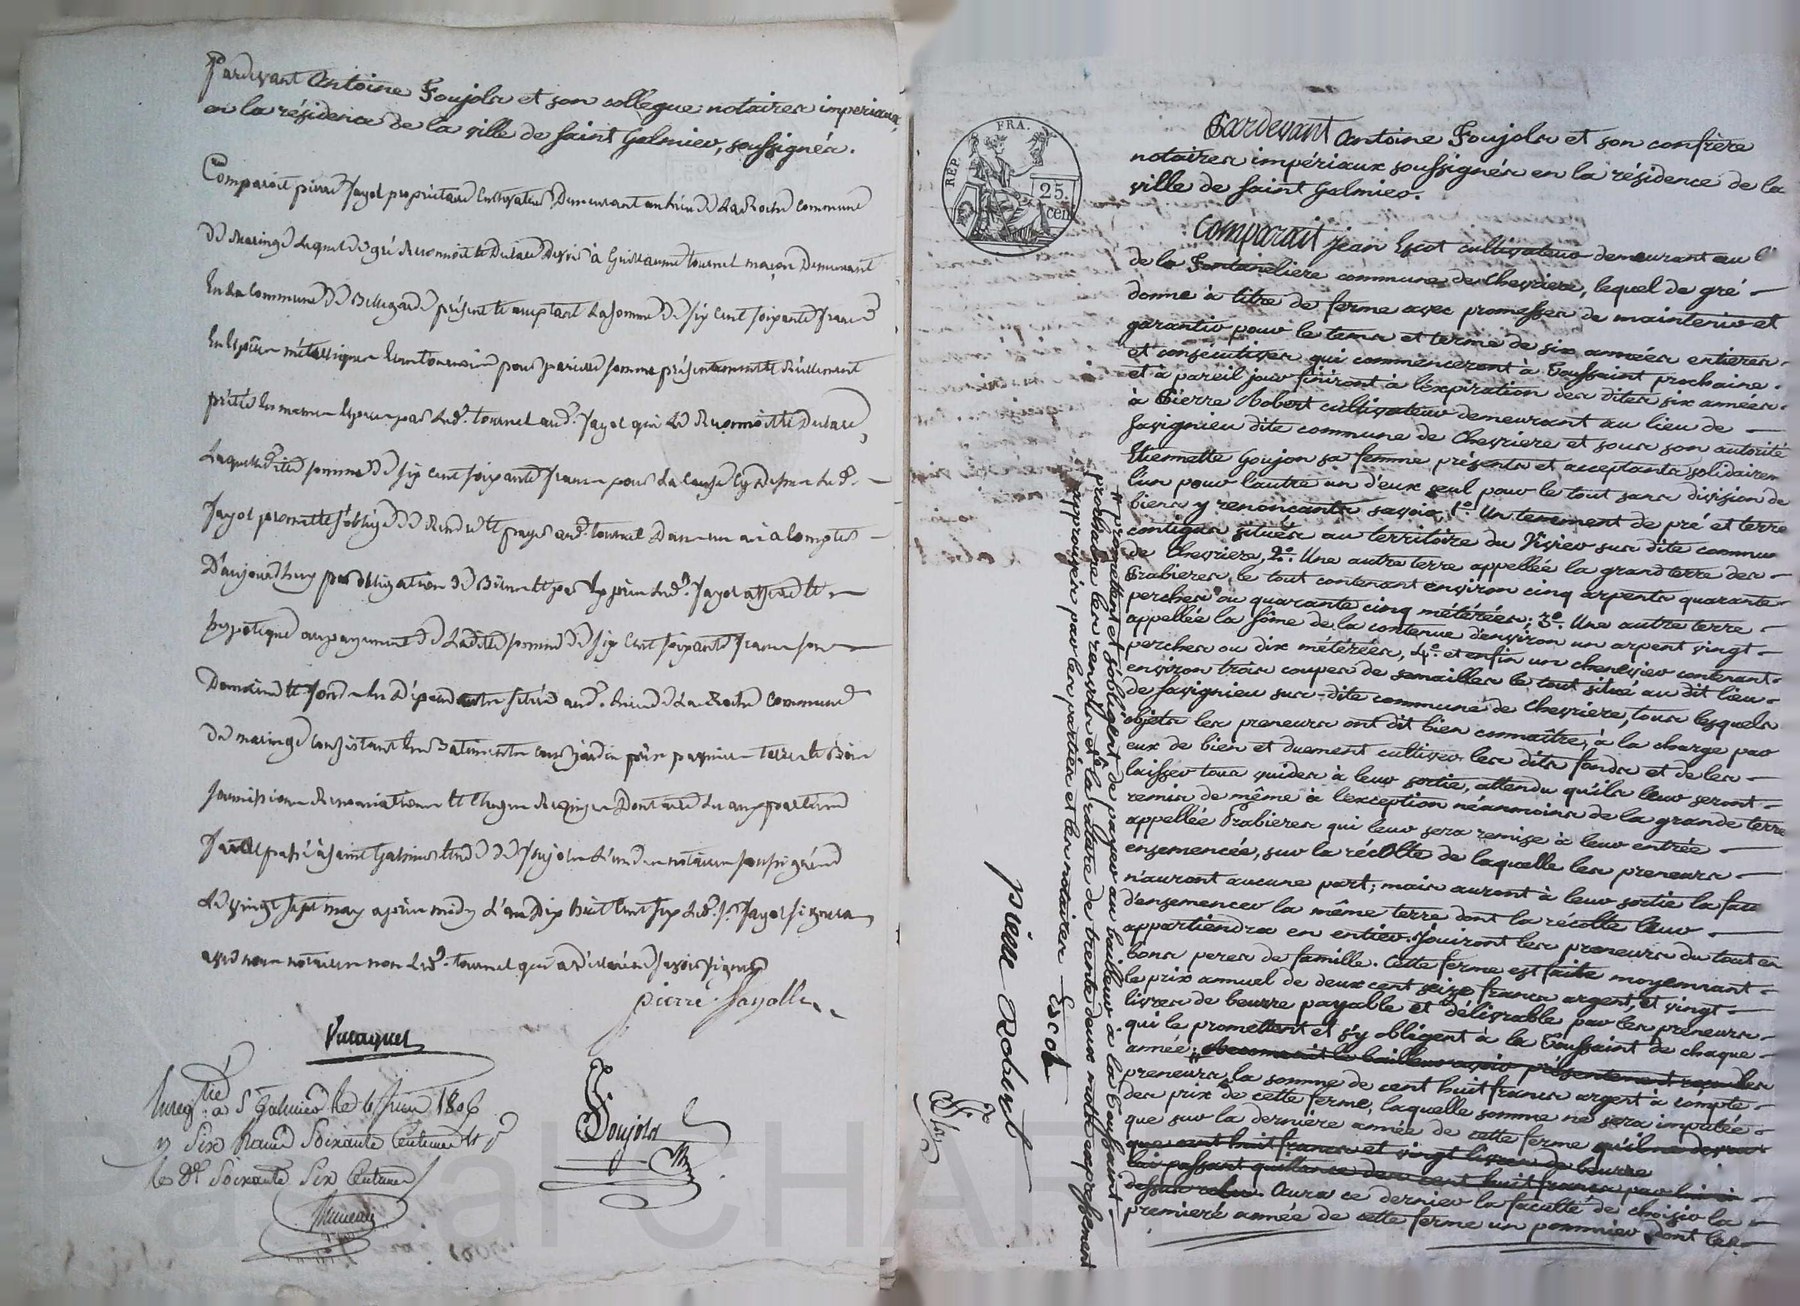 Pardevant Antoine Foujols et son collègue notaires imperiaux
en la résidence de la ville de Saint Galmier, soussignés.
Comparoit pierre Jayol propriétaire Cultivateur Demeurant au lieu de La Roche Commune
de Maringe lequel de gré Reconnoit et Declare devoir à Guillaume tournel maçon Demeurant
En la Commune de Bellegarde présent et acceptant La somme de six Cent soixante francs
En Espèces métalliques pour pareille somme présentement et Réellement
prêtée En mêmes Espèces par led. tournel aud. Jayol qui le Reconnoit et Declare,
Laquelle dite somme de six Cent soixante francs pour La Cause Cy dessus Led.
Jayol promet et s'oblige de Rendre et payer aud. tournel Dans un an à Compter
D'aujourd'huy par obligation de Biens et par Exprès Led. Jayol affecte et
hypotèque au payement de Ladite somme de six Cent soixante francs son
Domaine et fonds En Dépendants situés aud. Lieu de La Roche Commune
de maringe Consistant En Batiments Cour jardin près paquiers terres et Bois
soumissions Renonciations et Clauses Requises Dont acte
fait et passé à Saint Galmier Etude de Foujols L'un des notaires soussignés
Le vingt sept may après midy L'an Dix huit Cent six Led. Jayol signera
avec nous notaires non Led. tournel qui a déclaré ne savoir signer
pierre Jayolle
Enregtré à St Galmier le 6 Juin 1806
Six francs Soixante Centimes
Soixante Six Centimes
Foujols
REP. FRA.
25.
cen
Pardevant Antoine Foujols et son confrère
notaires impériaux soussignés en la résidence de la
ville de Saint Galmier.
Comparait jean Escot cultivateur demeurant au l
de la Fontaneliere commune de Chevriere, lequel de gré
donne à titre de ferme avec promesses de maintenir et
garantir pour le tems et terme de six années entieres
et consecutives qui commenceront à Toussaint prochaine
et à pareil jour finiront à l'expiration des dites six années
à Pierre Robert cultivateur demeurant au lieu de
Savignieu dite commune de Chevriere et sous son autorité
Etiennette Goujon sa femme présents et acceptants solidairem
l'un pour l'autre un d'eux seul pour le tout sans division de
biens y renonçants savoir, 1º. Un tenement de pré et terre
contigus situés au territoire du Vivier sus dite commune
de Chevriere, 2º. Une autre terre appellée la grand terre des
Prabieres, le tout contenant environ cinq arpents quarante
perches ou quarante cinq métérées; 3º. Une autre terre
appellée la Sôme de la contenue d'environ un arpent vingt
perches ou dix métérées, 4º. et enfin un chenevier contenant
environ trois coupes de semailles le tout situé au dit lieu
de Savignieu sus-dite commune de Chevriere, tous lesquels
objets les preneurs ont dit bien connaître, à la charge par
eux de bien et duement cultiver les dits fonds et de les
laisser tous vuides à leur sortie, attendu qu'ils leur seront
remis de même à l'exception néanmoins de la grande terre
appellée Prabieres qui leur sera remise à leur entrée
ensemencée, sur la récolte de laquelle les preneurs
n'auront aucune part; mais auront à leur sortie la facu
d'ensemencer la même terre dont la récolte leur
appartiendra en entier. Jouiront les preneurs du tout en
bons peres de famille. Cette ferme est faite moyennant
le prix annuel de deux cent seize francs argent, et vingt
livres de beurre payable et délivrable par les preneurs
qui le promettent et s'y obligent à la Toussaint de chaque
année; # Reconnait le bailleur avoir présentement reçu des
preneurs la somme de cent huit francs argent à compte
des prix de cette ferme, laquelle somme ne sera imputée
que sur la derniere année de cette ferme qu'il ne devra
que cent huit francs et vingt livres de beurre
lui passant quittance des cent huit francs par lui ci
dessus celus. Aura ce dernier la faculté de choisir la
premiere année de cette ferme un pommier dont les
# promettent et s'obligent de payer au bailleur à la Toussaint
prochaine les renvois et la rature de trente deux mots expressement
approuvés par les parties et les notaires
Escot
pierre Robert